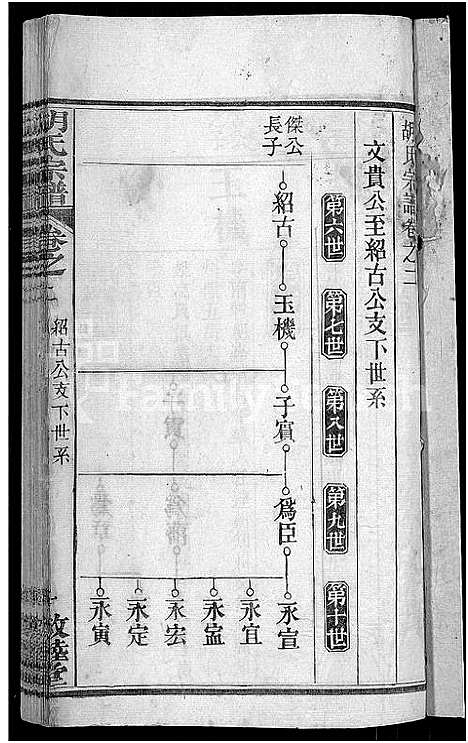 胡氏宗譜卷之二
文貴公至紹古公支下世系
第六世
第七世
第八世
第九世
第十世
傑公
長子
紹古
玉機
子賓
為臣
永宣
永宜
永宏
永定
永寅
胡氏宗譜
卷之二
紹古公支下世系
一
敦睦堂